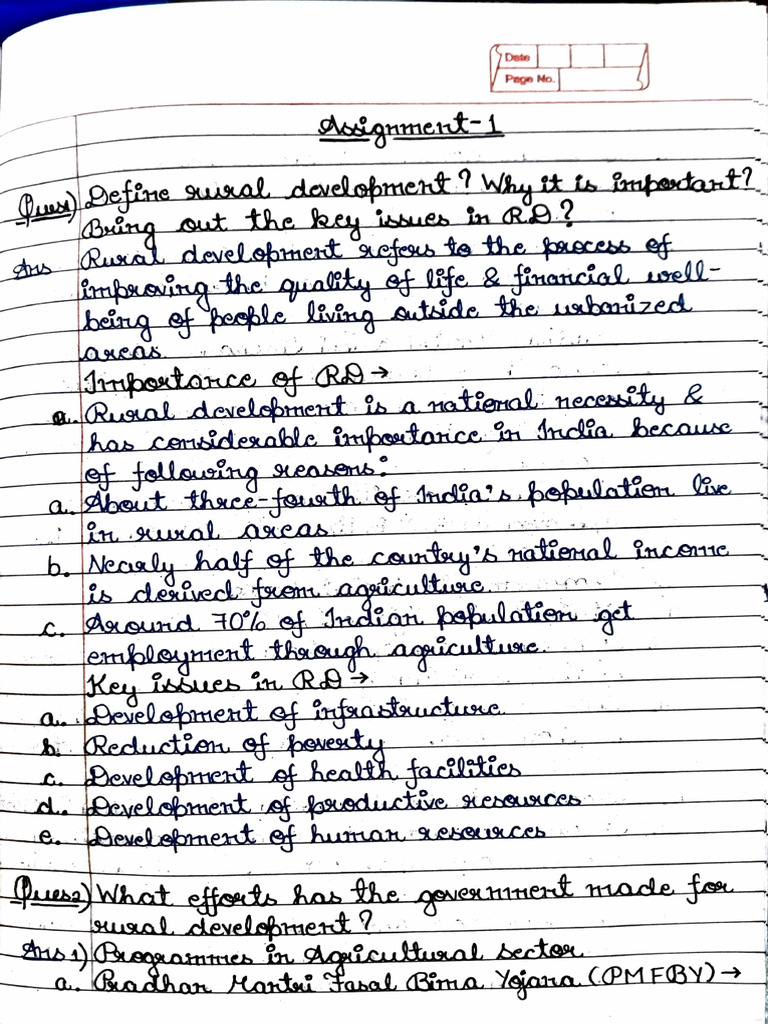 Date
Page No.
Assignment-1
Ques1) Define rural development? Why it is important?
Bring out the key issues in RD?
Ans Rural development refers to the process of
improving the quality of life & financial well-
being of people living outside the urbanized
areas.
Importance of RD →
a. Rural development is a national necessity &
has considerable importance in India because
of following reasons:
a. About three-fourth of India's population live
in rural areas.
b. Nearly half of the country's national income
is derived from agriculture.
c. Around 70% of Indian population get
employment through agriculture.
Key issues in RD →
a. Development of infrastructure
b. Reduction of poverty
c. Development of health facilities
d. Development of productive resources
e. Development of human resources
Ques2) What efforts has the government made for
rural development?
Ans 1) Programmes in Agricultural sector
a. Pradhan Mantri Fasal Bima Yojana (PMFBY) →